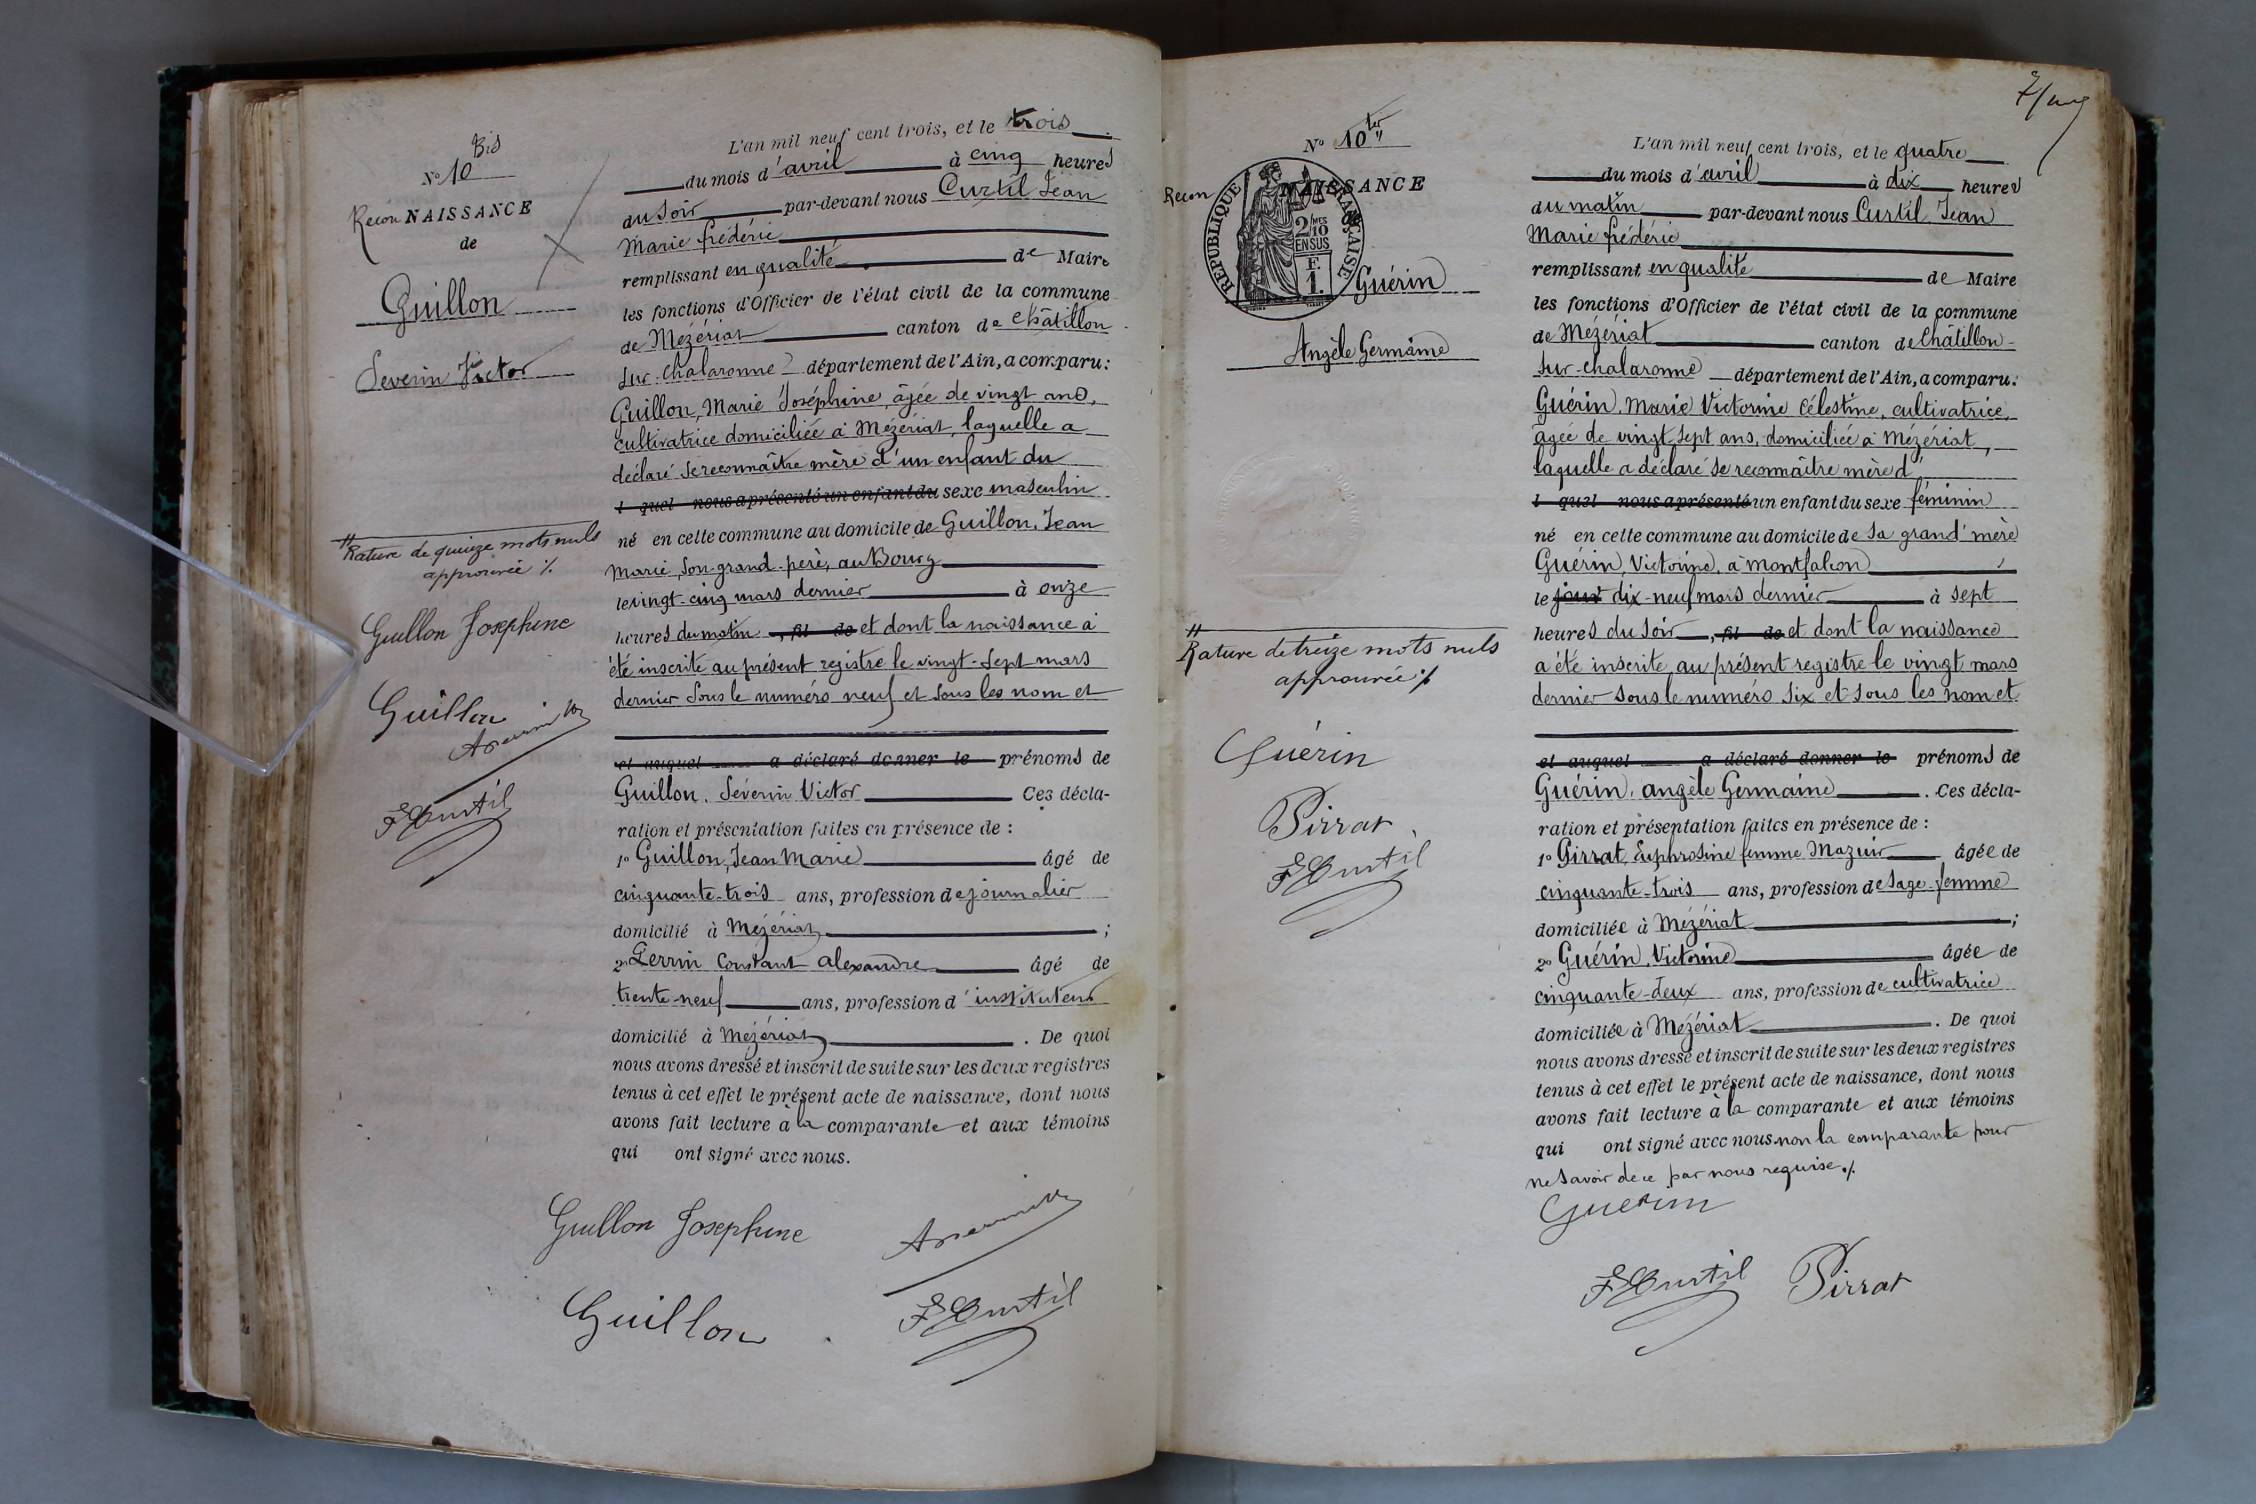 Bis
N° 10
Recon NAISSANCE
de
Guillon
Séverin Victor
Rature de quinze mots nuls
approuvée ./.
Guillon Josephine
Guillon
F Curtil
L'an mil neuf cent trois, et le trois
du mois d'avril à cinq heures
du soir par-devant nous Curtil Jean
Marie frédéric
remplissant en qualité de Maire
les fonctions d'Officier de l'état civil de la commune
de Mézériat canton de Châtillon
sur-Chalaronne département de l'Ain, a comparu:
Guillon, Marie Joséphine, âgée de vingt ans,
cultivatrice domiciliée à Mézériat, laquelle a
déclaré se reconnaître mère d'un enfant du
l quel nous a présenté un enfant du sexe masculin
né en cette commune au domicile de Guillon, Jean
Marie, son grand-père, au Bourg
le vingt-cinq mars dernier à onze
heures du matin , fil de et dont la naissance a
été inscrite au présent registre le vingt-sept mars
dernier sous le numéro neuf et sous les nom et
et auquel a déclaré donner le prénoms de
Guillon, Séverin Victor Ces décla-
ration et présentation faites en présence de :
1° Guillon, Jean Marie âgé de
cinquante-trois ans, profession de journalier
domicilié à Mézériat ;
2° Perrin Constant alexandre âgé de
trente-neuf ans, profession d'instituteur
domicilié à Mézériat . De quoi
nous avons dressé et inscrit de suite sur les deux registres
tenus à cet effet le présent acte de naissance, dont nous
avons fait lecture à la comparante et aux témoins
qui ont signé avec nous.
Guillon Josephine
Guillon
F Curtil
N° 10 ter
Recon NAISSANCE
RÉPUBLIQUE FRANÇAISE
2/10 MES
EN SUS
F.
1.
Guérin
Angèle Germaine
Rature de treize mots nuls
approuvée ./.
Guérin
Pirrat
F Curtil
L'an mil neuf cent trois, et le quatre
du mois d'avril à dix heures
du matin par-devant nous Curtil, Jean
Marie frédéric
remplissant en qualité de Maire
les fonctions d'Officier de l'état civil de la commune
de Mézériat canton de Châtillon-
sur-chalaronne département de l'Ain, a comparu:
Guérin, Marie Victorine Célestine, cultivatrice,
âgée de vingt-sept ans, domiciliée à Mézériat,
laquelle a déclaré se reconnaître mère d'
l quel nous a présenté un enfant du sexe féminin
né en cette commune au domicile de sa grand'mère
Guérin, Victorine, à Montfalcon
le jour dix-neuf mars dernier à sept
heures du soir , fil de et dont la naissance
a été inscrite au présent registre le vingt mars
dernier sous le numéro six et sous les nom et
et auquel a déclaré donner le prénoms de
Guérin, angèle Germaine . Ces décla-
ration et présentation faites en présence de :
1° Pirrat, Euphrosine femme Mazuir âgée de
cinquante-trois ans, profession de sage-femme
domiciliée à Mézériat ;
2° Guérin, Victorine âgée de
cinquante-deux ans, profession de cultivatrice
domiciliée à Mézériat . De quoi
nous avons dressé et inscrit de suite sur les deux registres
tenus à cet effet le présent acte de naissance, dont nous
avons fait lecture à la comparante et aux témoins
qui ont signé avec nous non la comparante pour
ne savoir de ce par nous requise ./.
Guerin
F Curtil Pirrat